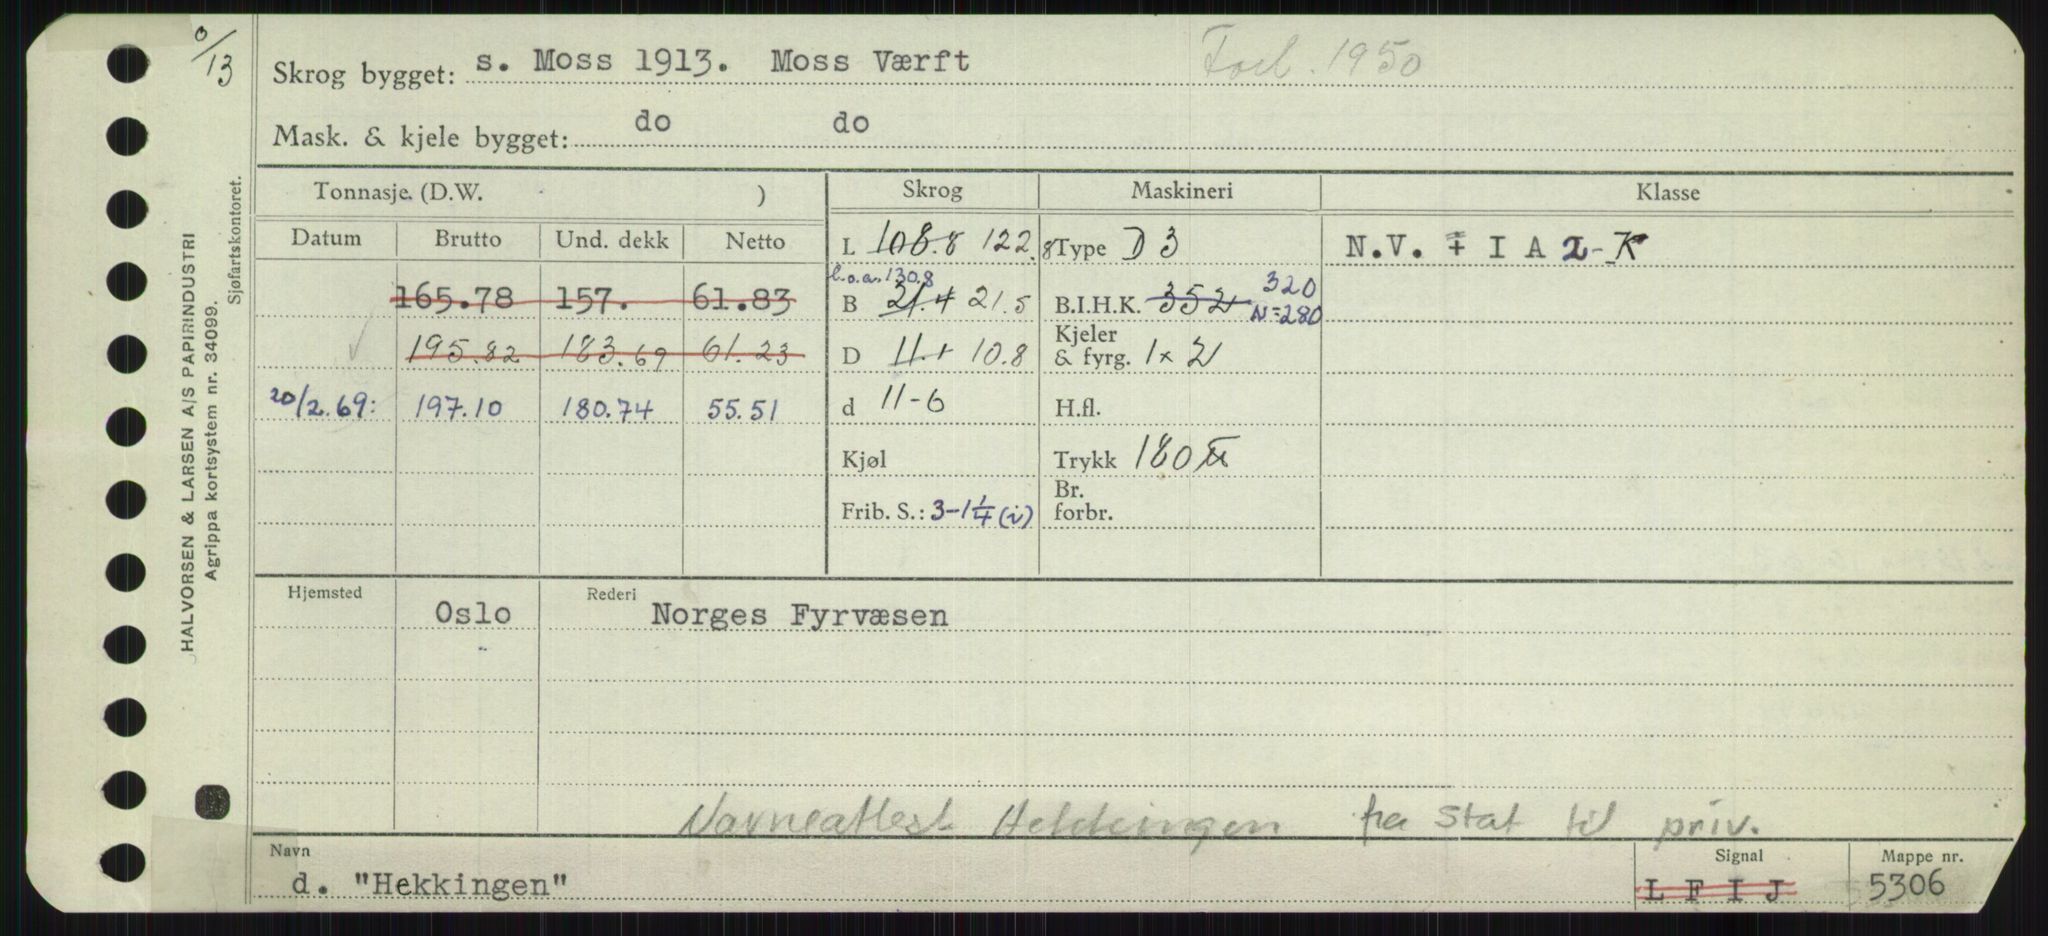 0/13
Skrog bygget: s. Moss 1913. Moss Værft Forl. 1950
Mask. & kjele bygget: do do
Tonnasje (D.W. ) Skrog Maskineri Klasse
Datum Brutto Und. dekk Netto L 108.8 122.8 Type D 3 N.V. + I A 2-K
l.o.a. 130.8
165.78 157. 61.83 B 21.4 21.5 B.I.H.K. 352 320 N=280
195.82 183.69 61.23 D 11.1 10.8 Kjeler & fyrg. 1x2
20/2.69: 197.10 180.74 55.51 d 11-6 H.fl.
Kjøl Trykk 180
Frib. S.: 3-1 1/4 (i) Br. forbr.
Hjemsted Rederi
Oslo Norges Fyrvæsen
Navneattest Hekkingen fra stat til priv.
Navn Signal Mappe nr.
d. "Hekkingen" L F I J 5306
HALVORSEN & LARSEN A/S PAPIRINDUSTRI
Agrippa kortsystem nr. 34099.
Sjøfartskontoret.